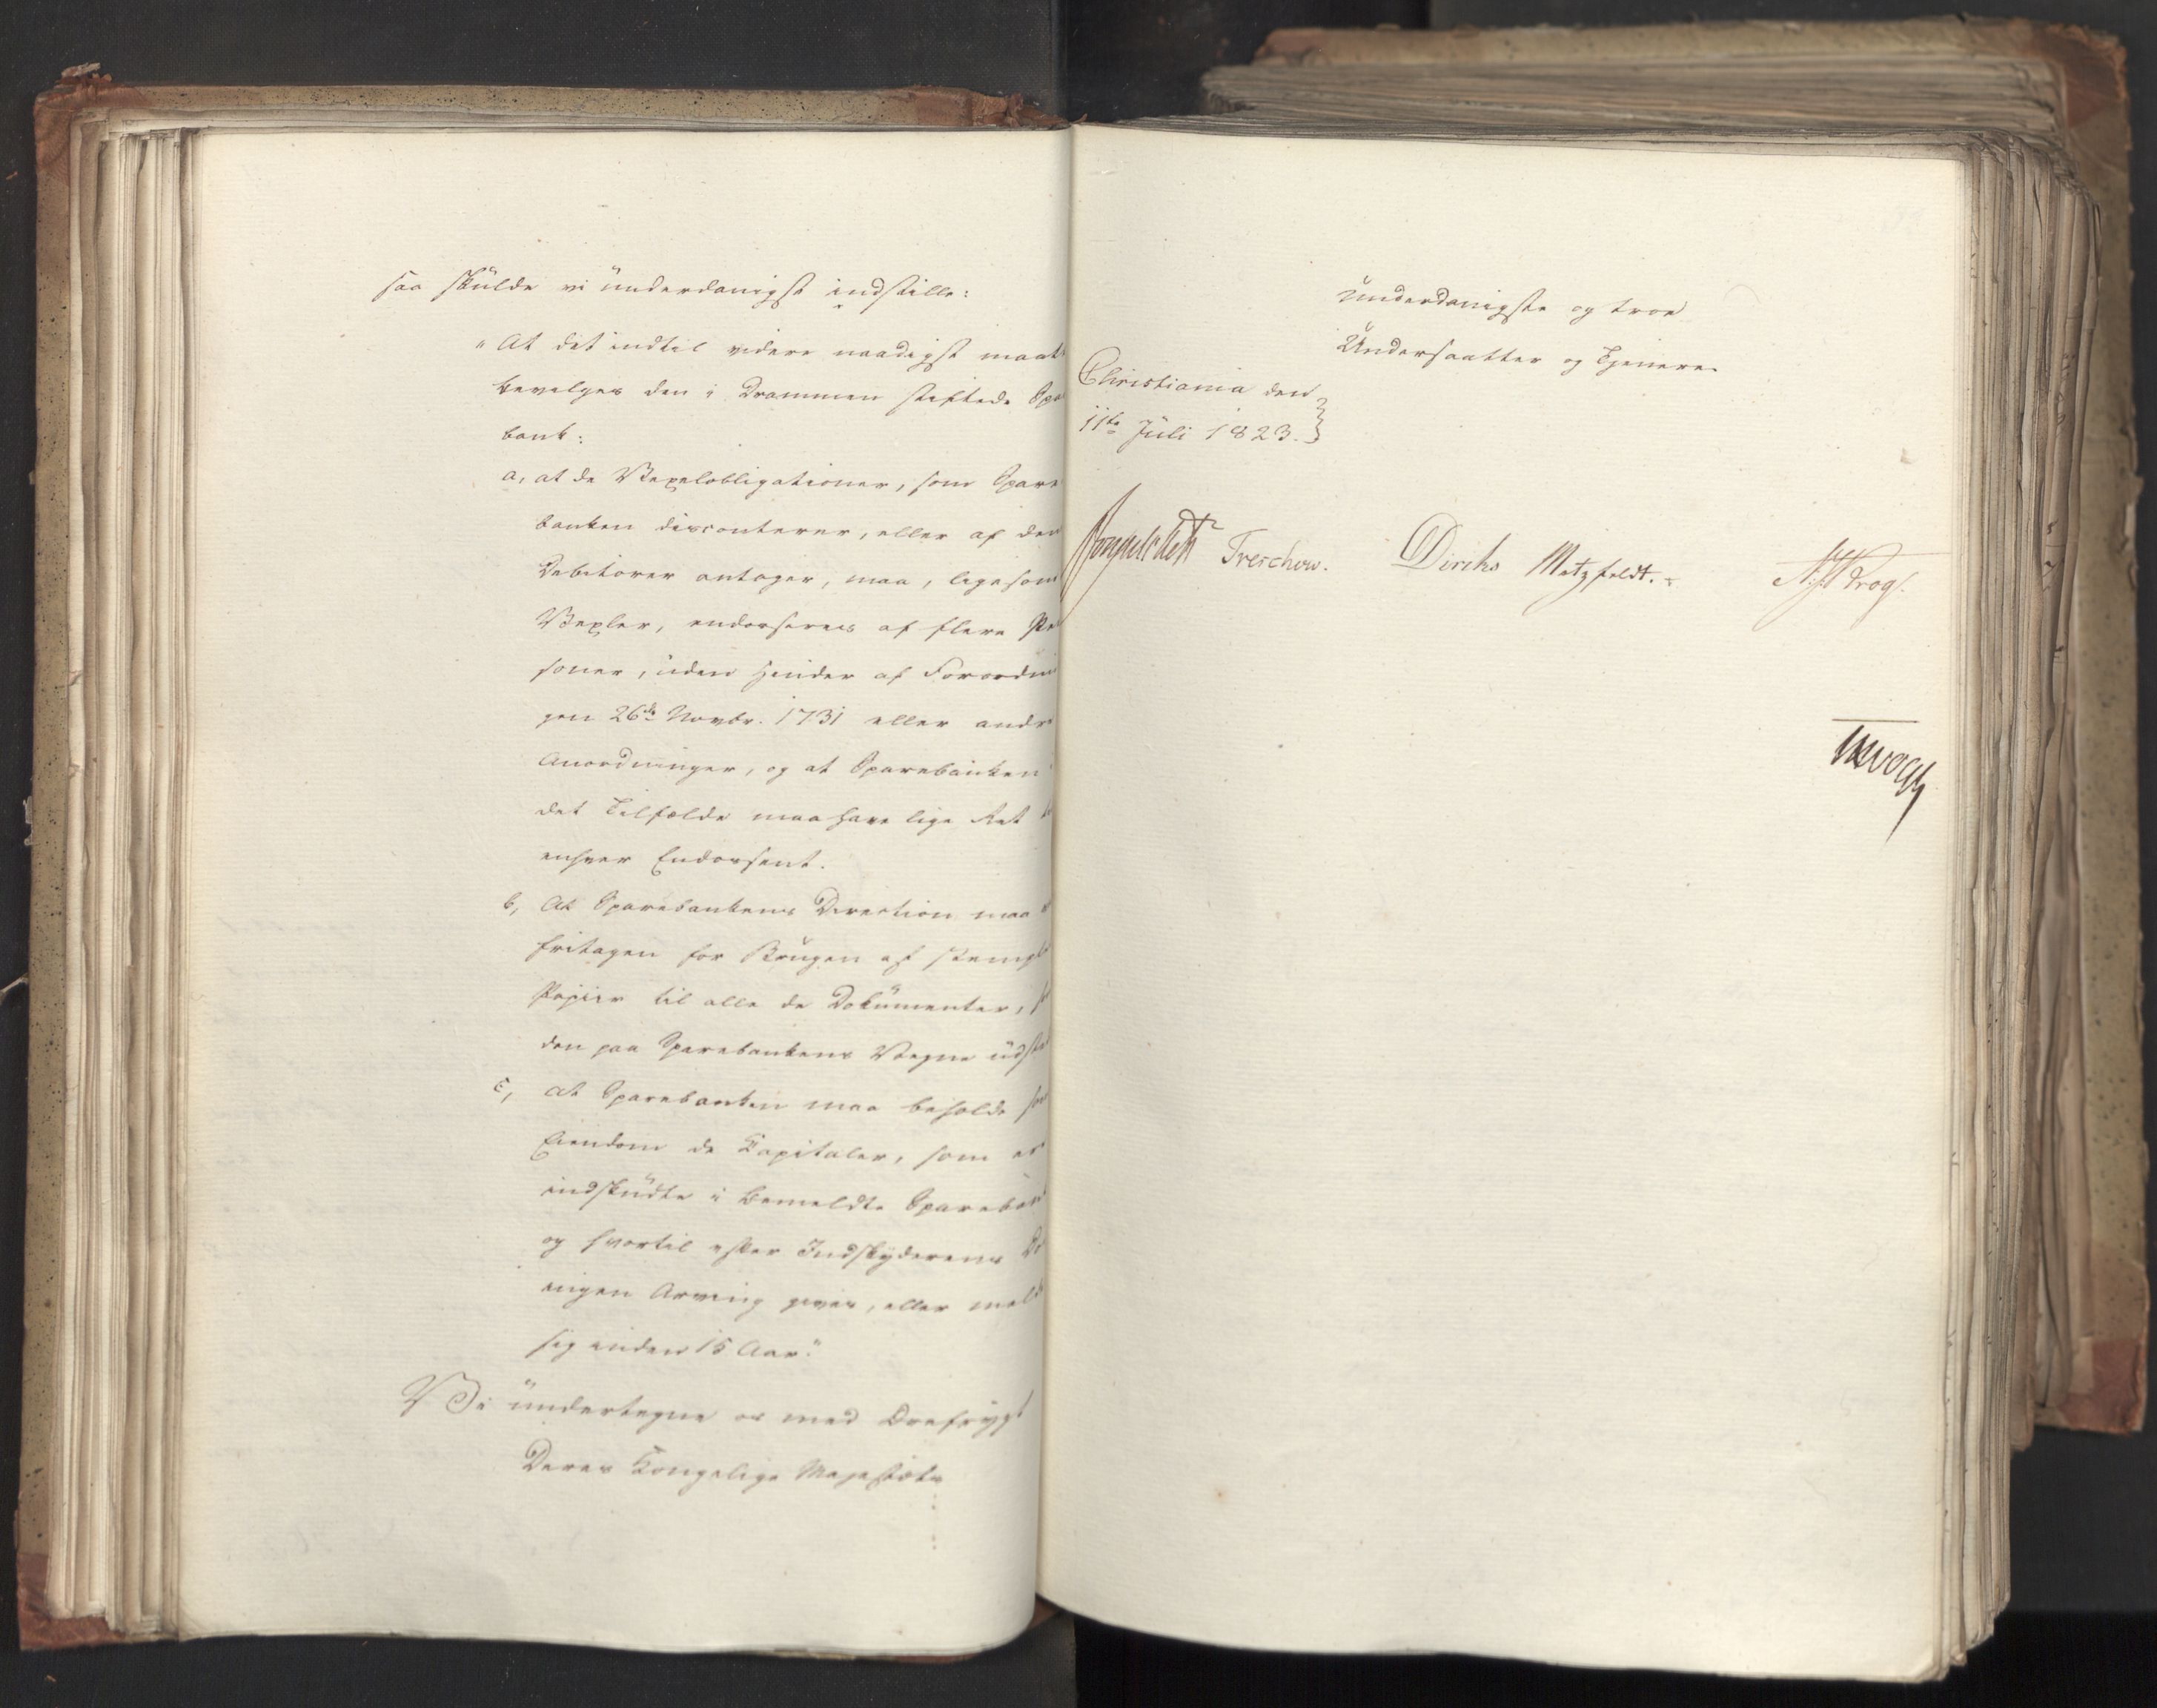 saa skulde vi underdanigst indstille:
"At det indtil videre naadigst maat
bevilges den i Drammen stiftede Spa
bank:
a, at de Vexelobligationer, som Spare
banken disconterer, eller af den
Debitorer antager, maa, ligesom
Vexler, endosseres af flere Per
soner, uden Hinder af Forordni
gen 26de Novbr. 1731 eller andre
Anordninger, og at Sparebanken i
det Tilfælde maa have lige Ret
enhver Endossent.
b, At Sparebankens Direction maa
fritagen for Brugen af stemplet
Papiir til alle de Dokumenter,
den paa Sparebankens Vegne udsted
c, at Sparebanken maa beholde som
Eiendom de Kapitaler, som er
indskudte i bemeldte Sparebank
og hvortil efter Indskyderens Dø
ingen Arving gives, eller meld
sig inden 15 Aar."
Vi undertegne os med Ærefrygt
Deres Kongelige Majestæts
underdanigste og troe
Undersaatter og Tjenere.
Christiania den
11te Juli 1823.
Treschow. Diriks Motzfeldt. Krog.
Vogt